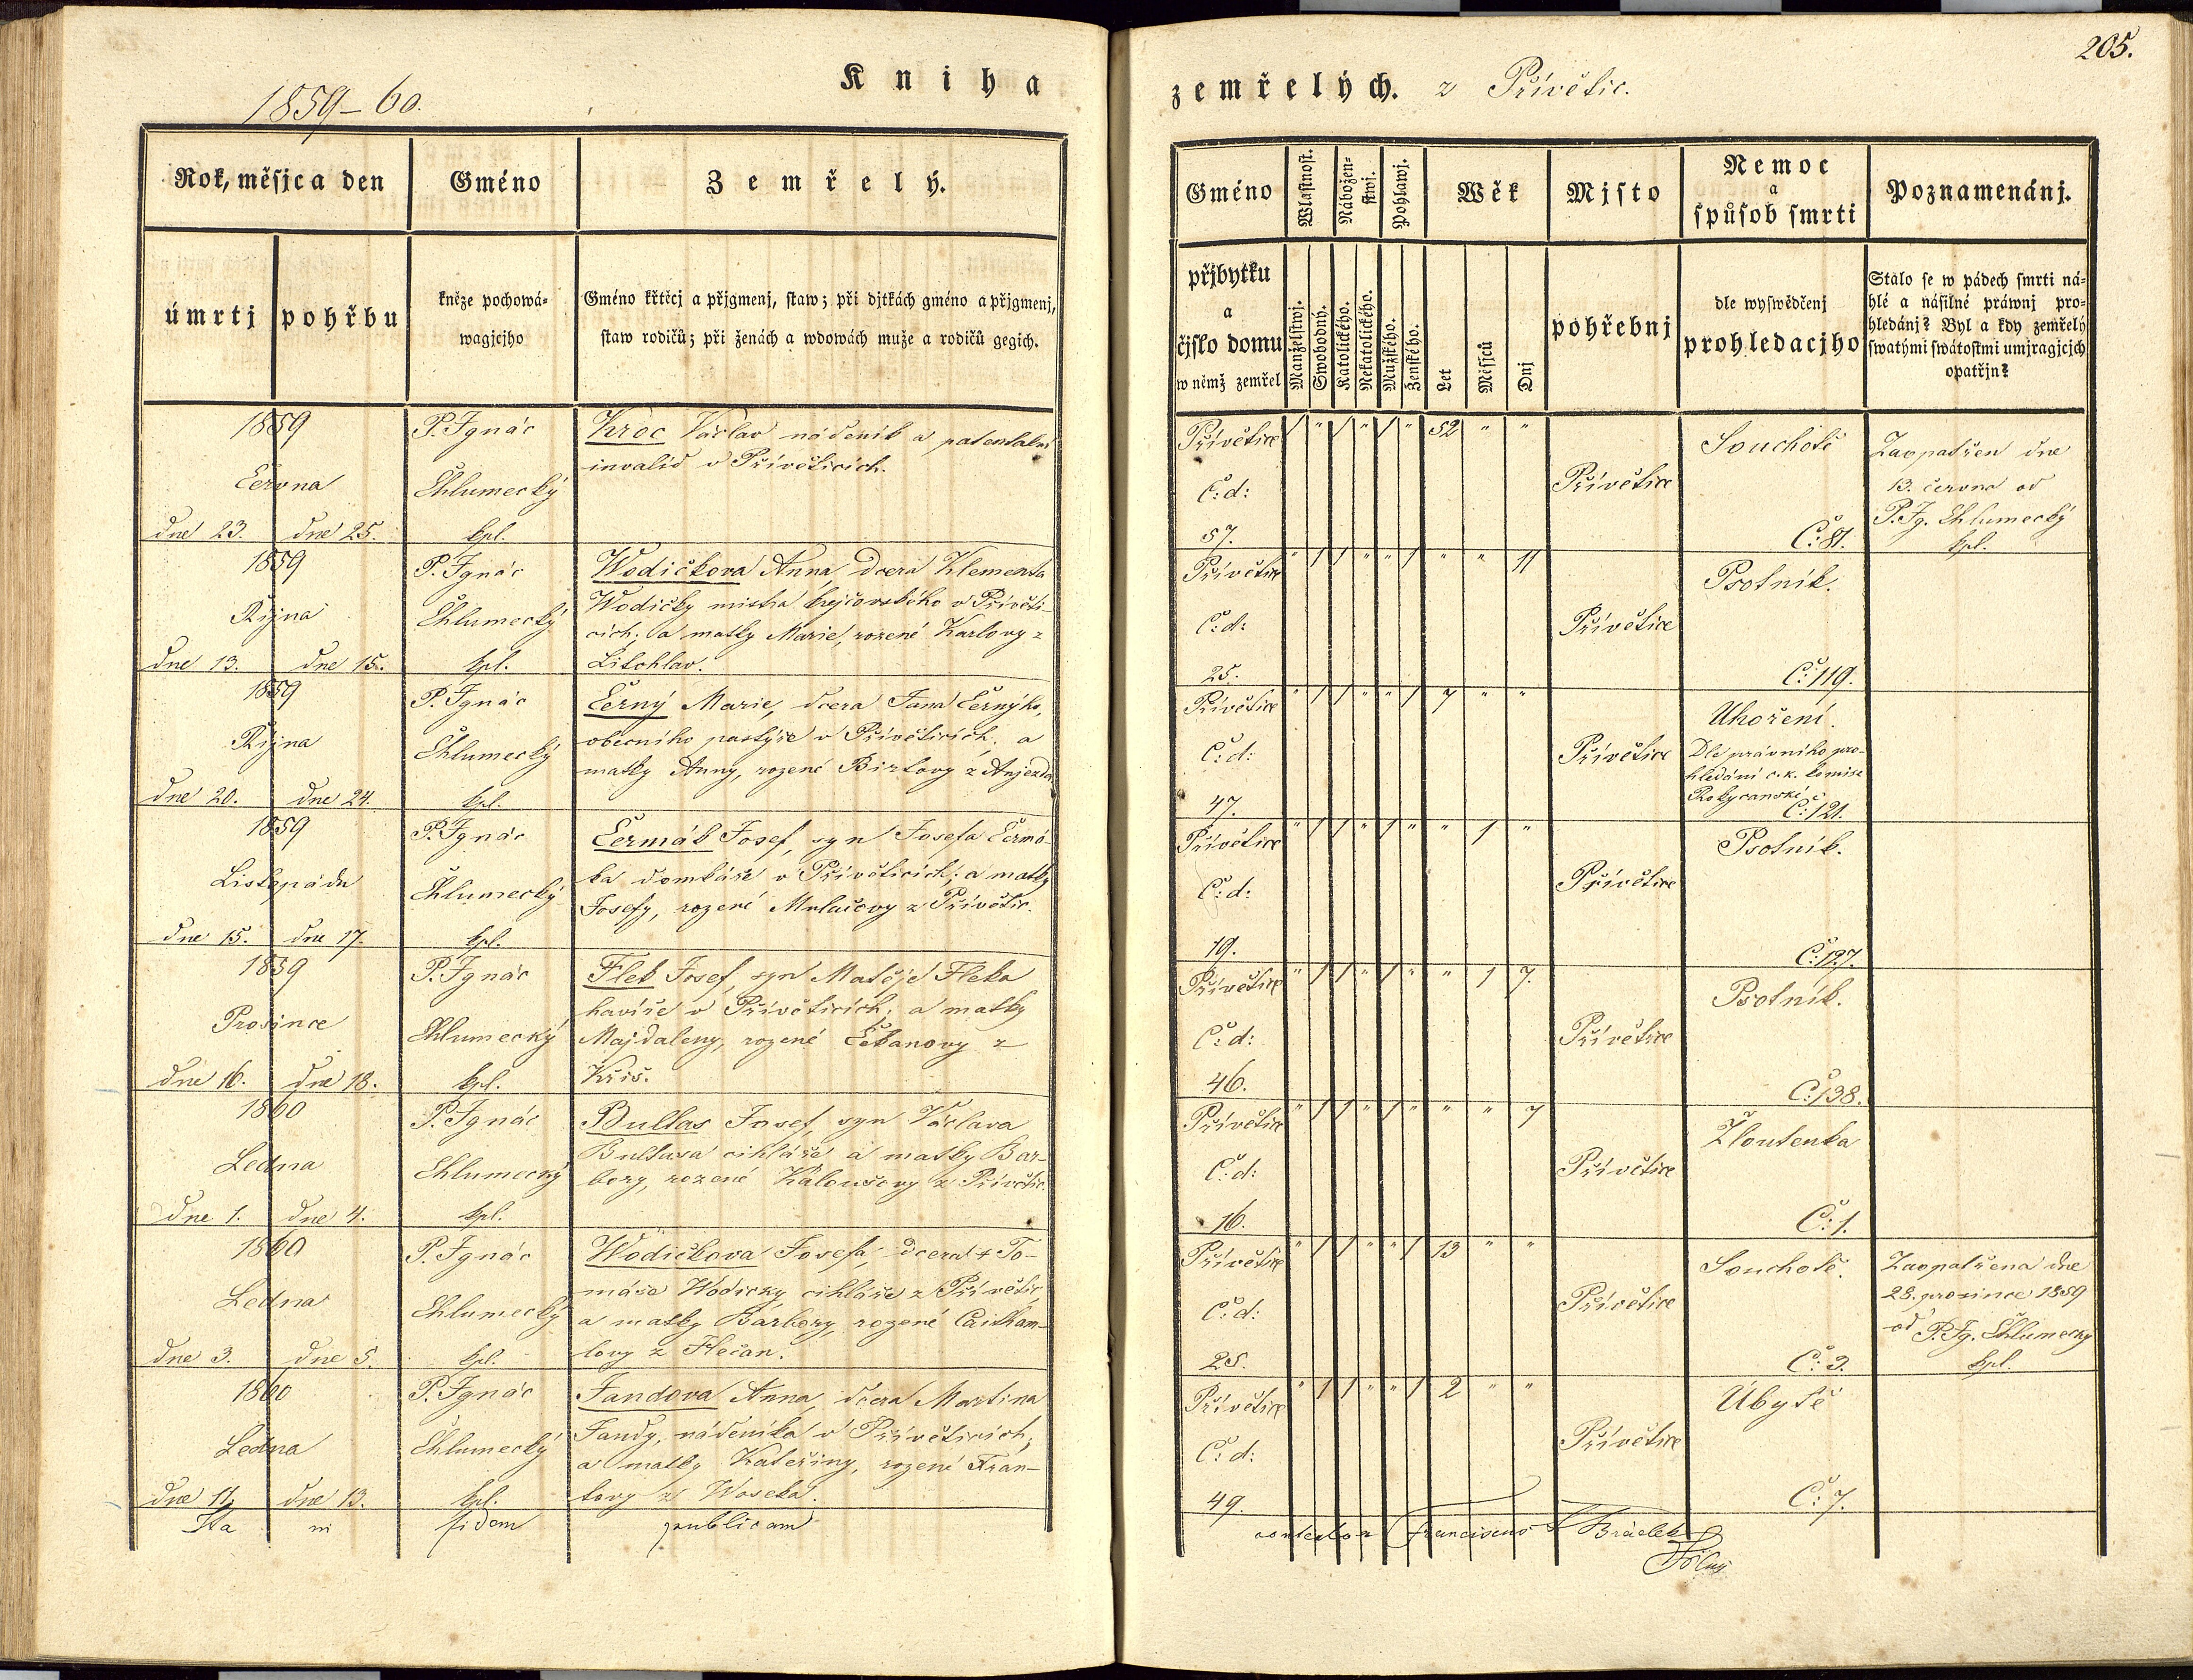 205.
1859–60.
Kniha
zemřelých. z Přívětic.
Rok, měsjc a den
Gméno
Zemřelý.
úmrtj
pohřbu
kněze pochowá-
wagjcjho
Gméno křtěcj a přjgmenj, staw; při djtkách gméno a přjgmenj,
staw rodičů; při ženách a wdowách muže a rodičů gegich.
Gméno
Wlastnost.
Nábožen-
stwj.
Pohlawj.
Wěk
Mjsto
Nemoc
a
spůsob smrti
Poznamenánj.
přjbytku
a
čjslo domu
w němž zemřel
Manželstwj.
Swobodný.
Katolického.
Nekatolického.
Mužského.
Ženského.
Let
Měsjců
Dnj
pohřebnj
dle wyswědčenj
prohledacjho
Stalo se w pádech smrti ná-
hlé a násilné práwnj pro-
hledánj? Byl a kdy zemřelý
swatými swátostmi umjragjcjch
opatřjn?
1859
Června
dne 23. dne 25.
P. Ignác
Chlumecký
kpl.
Kroc Václav nádeník a patentalní
invalid v Přívěticích.
Přívětice
Č: d:
57.
/ " / " / " 52 " "
Přívětice
Souchotě
Č: 81.
Zaopatřen dne
13. června od
P. Ig. Chlumecký
kpl.
1859
Října
dne 13. dne 15.
P. Ignác
Chlumecký
kpl.
Wodičkova Anna, dcera Klementa
Wodičky mistra krejčovského v Přívěti-
cích; a matky Marie, rozené Karlovy z
Litohlav.
Přívětice
Č: d:
25.
" / / " " / " " 11
Přívětice
Psotník.
Č: 119.
1859
Října
dne 20. dne 24.
P. Ignác
Chlumecký
kpl.
Černý Marie, dcera Jana Černýho,
obecního pastýře v Přívěticích; a
matky Anny, rozené
Přívětice
Č: d:
47.
" / / " " / 7 " "
Přívětice
Uhoření.
Dle právního pro-
hledání c. k. komise
Rokycanské
Č: 121.
1859
Listopadu
dne 15. dne 17.
P. Ignác
Chlumecký
kpl.
Čermák Josef, syn Josefa Čermá-
ka domkáře v Přívěticích; a matky
Josefy, rozené Mulačovy z Přívětic.
Přívětice
Č: d:
19.
" / / " / " " 1 "
Přívětice
Psotník.
Č: 127.
1859
Prosince
dne 16. dne 18.
P. Ignác
Chlumecký
kpl.
Flek Josef, syn Matěje Fleka
havíře v Přívěticích; a matky
Majdaleny, rozené Čekanovy z
Kříš.
Přívětice
Č: d:
46.
" / / " / " " 1 7.
Přívětice
Psotník.
Č: 138.
1860
Ledna
dne 1. dne 4.
P. Ignác
Chlumecký
kpl.
Bultas Josef, syn Václava
Bultasa cihláře a matky Bar-
bory, rozené Kaloušovy z Přívětic.
Přívětice
Č: d:
16.
" / / " / " " " 7
Přívětice
Žloutenka
Č: 1.
1860
Ledna
dne 3. dne 5.
P. Ignác
Chlumecký
kpl.
Wodičkova Josefa, dcera † To-
máše Wodičky cihláře z Přívětic,
a matky Barbory, rozené Caitham-
lovy z Flečan.
Přívětice
Č: d:
25.
" / / " " / 13 " "
Přívětice
Souchotě.
Č: 3.
Zaopatřena dne
28. prosince 1859
od P. Ig. Chlumecký
kpl.
1860
Ledna
dne 11. dne 13.
P. Ignác
Chlumecký
kpl.
Jandova Anna, dcera Martina
Jandy, nádeníka v Přívěticích;
a matky Kateřiny, rozené Fran-
tovy z Woseka.
Přívětice
Č: d:
49.
" / / " " / 2 " "
Přívětice
Úbytě
Č: 7.
Ita in fidem publicam
contestor Franciscus